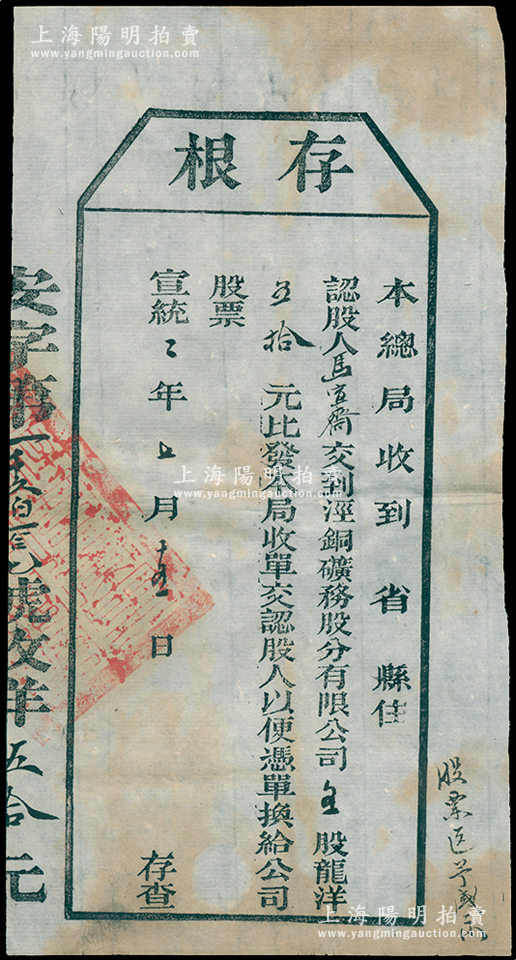 上海陽明拍賣
www.yangmingauction.com
存根
本總局收到 省 縣住
認股人馬宜齋交到涇銅礦務股分有限公司全股龍洋
五拾 元比發本局收單交認股人以便憑單換給公司
股票
宣統二年五月十五日 存查
安字第 號收洋五拾元
股票
上海陽明拍賣
www.yangmingauction.com
上海陽明拍賣
www.yangmingauction.com
上海陽明拍賣
www.yangmingauction.com